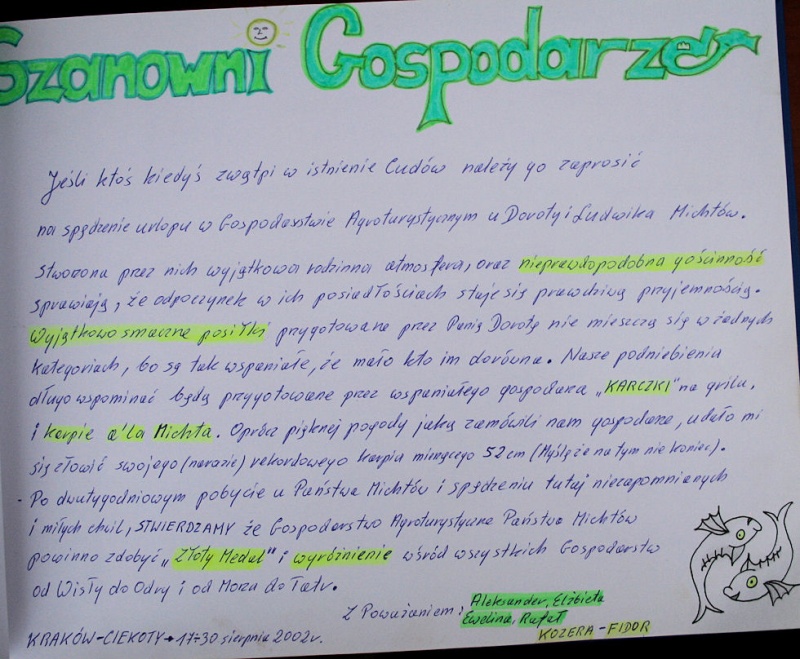 Szanowni Gospodarze
Jeśli ktoś kiedyś zwątpi w istnienie Cudów należy go zaprosić
na spędzenie urlopu w Gospodarstwie Agroturystycznym u Doroty i Ludwika Michtów.
Stworzona przez nich wyjątkowa rodzinna atmosfera, oraz nieprawdopodobna gościnność
sprawiają, że odpoczynek w ich posiadłościach staje się prawdziwą przyjemnością.
Wyjątkowo smaczne posiłki przygotowane przez Panią Dorotę nie mieszczą się w żadnych
kategoriach, bo są tak wspaniałe, że mało kto im dorówna. Nasze podniebienia
długo wspominać będą przygotowane przez wspaniałego gospodarza „KARCZKI" na grilu,
i karpie a'la Michta. Oprócz pięknej pogody jaką zamówili nam gospodarze, udało mi
się złowić swojego (narazie) rekordowego karpia mierzącego 52 cm (Myślę że na tym nie koniec).
- Po dwutygodniowym pobycie u Państwa Michtów i spędzeniu tutaj niezapomnianych
i miłych chwil, STWIERDZAMY że Gospodarstwo Agroturystyczne Państwa Michtów
powinno zdobyć „Złoty Medal" i wyróżnienie wśród wszystkich Gospodarstw
od Wisły do Odry i od Morza do Tatr.
Z Poważaniem: Aleksander, Elżbieta
Ewelina, Rafał
KOZERA - FIDOR
KRAKÓW-CIEKOTY → 17-30 sierpnia 2002r.